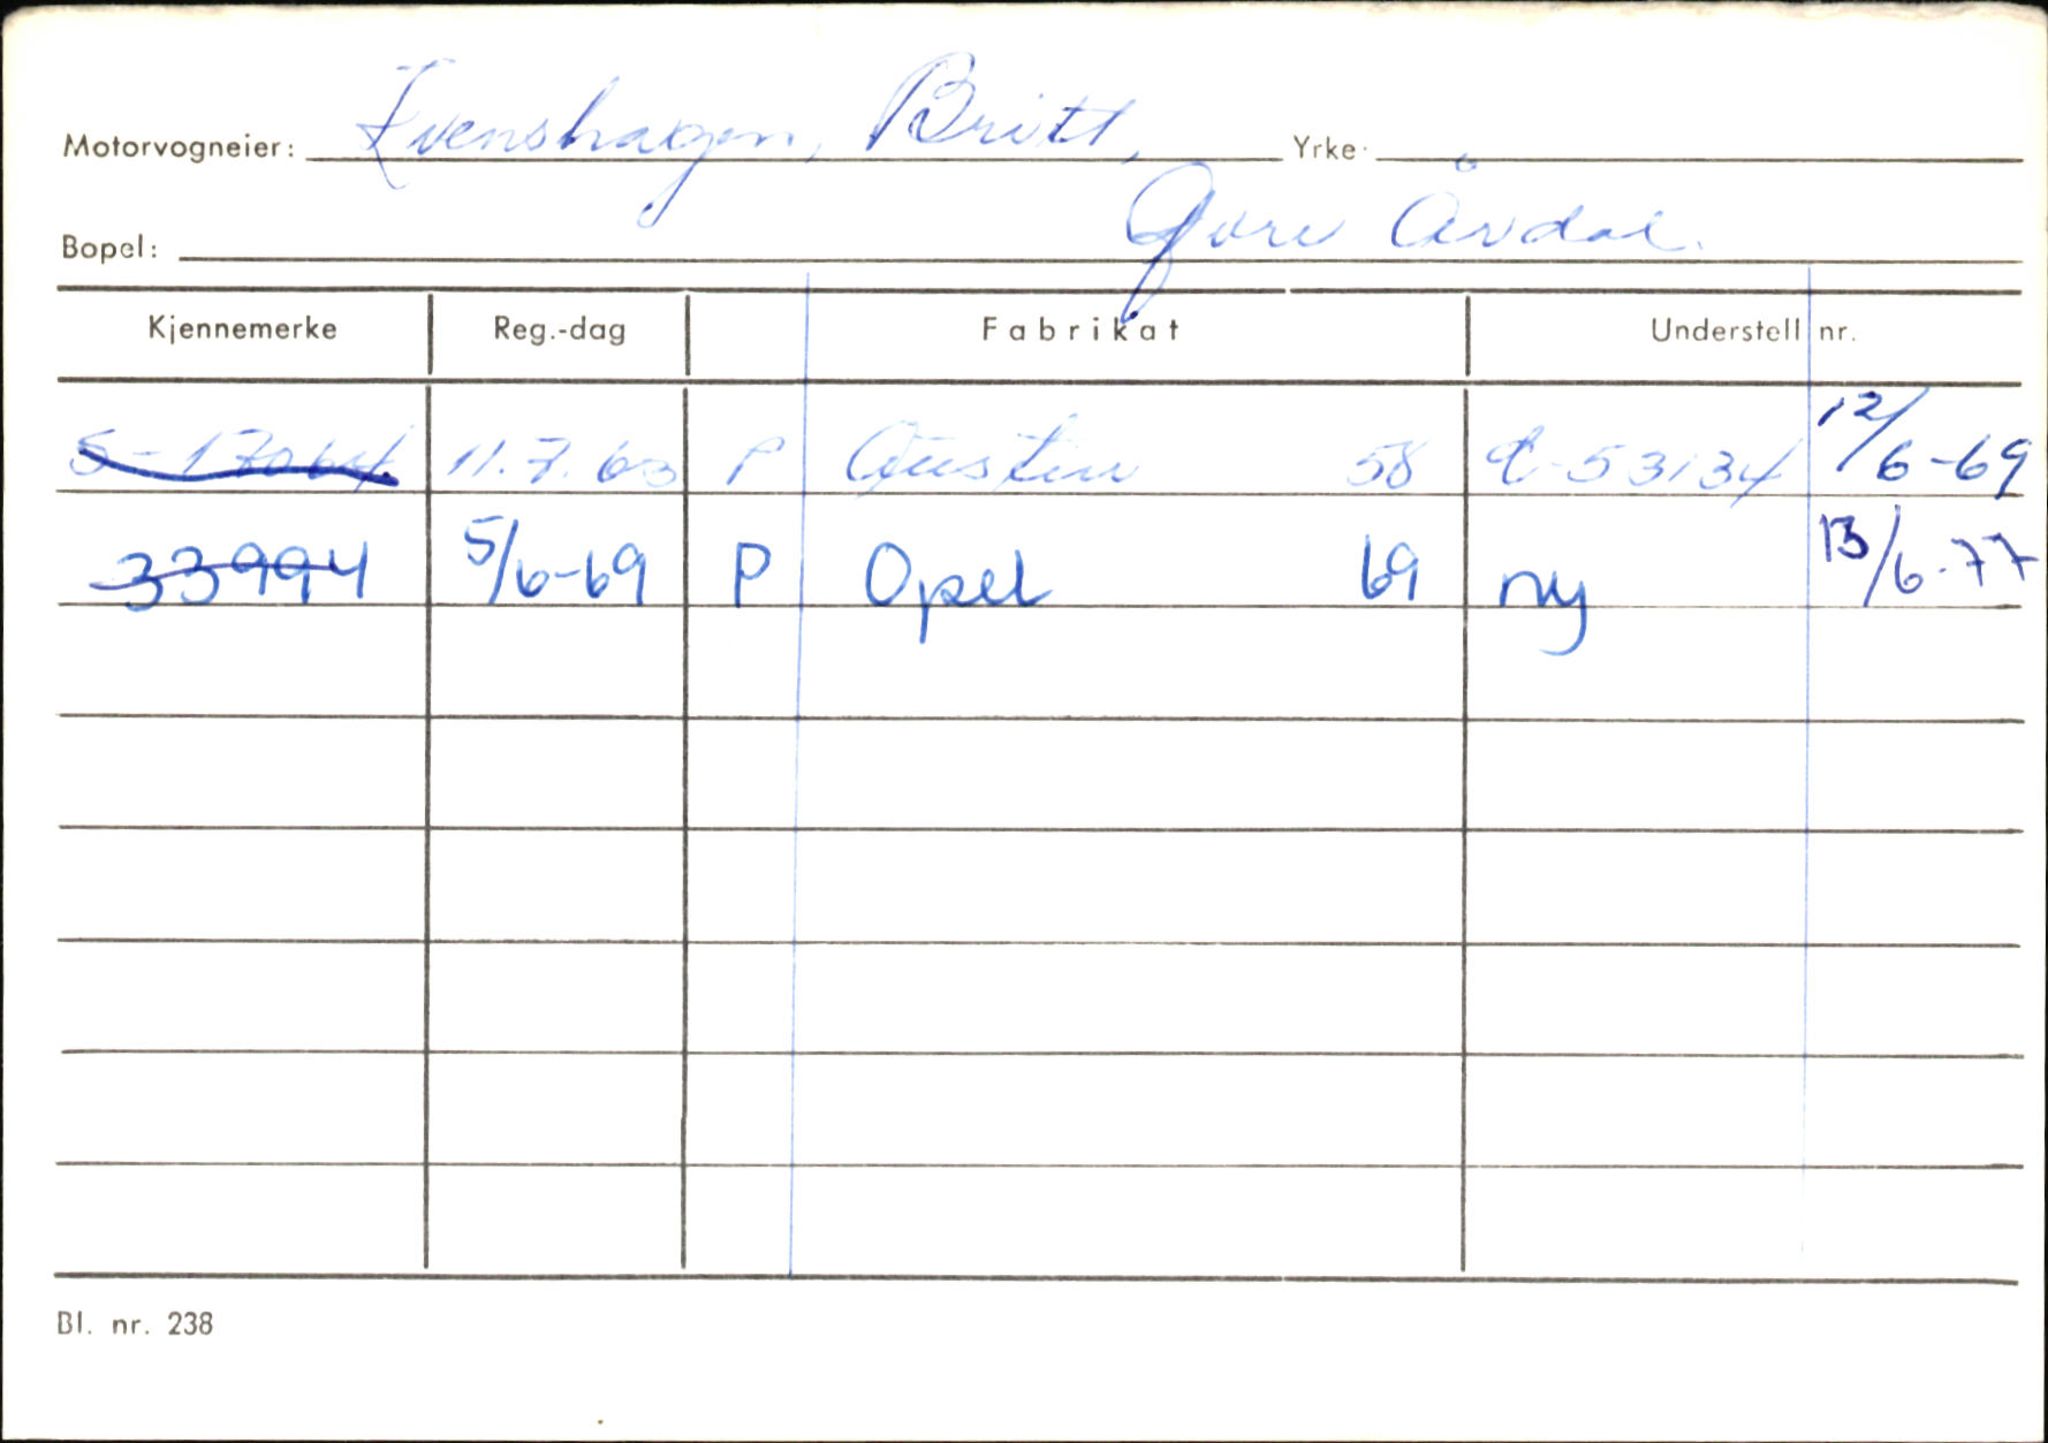 Motorvogneier: Evenshagen, Britt, Yrke:
Bopel: Øvre Årdal.
Kjennemerke Reg.-dag Fabrikat Understell nr.
S-17064 11.7.63 P Austin 58 53134 12/6-69
33994 5/6-69 P Opel 69 ny 13/6-77
Bl. nr. 238